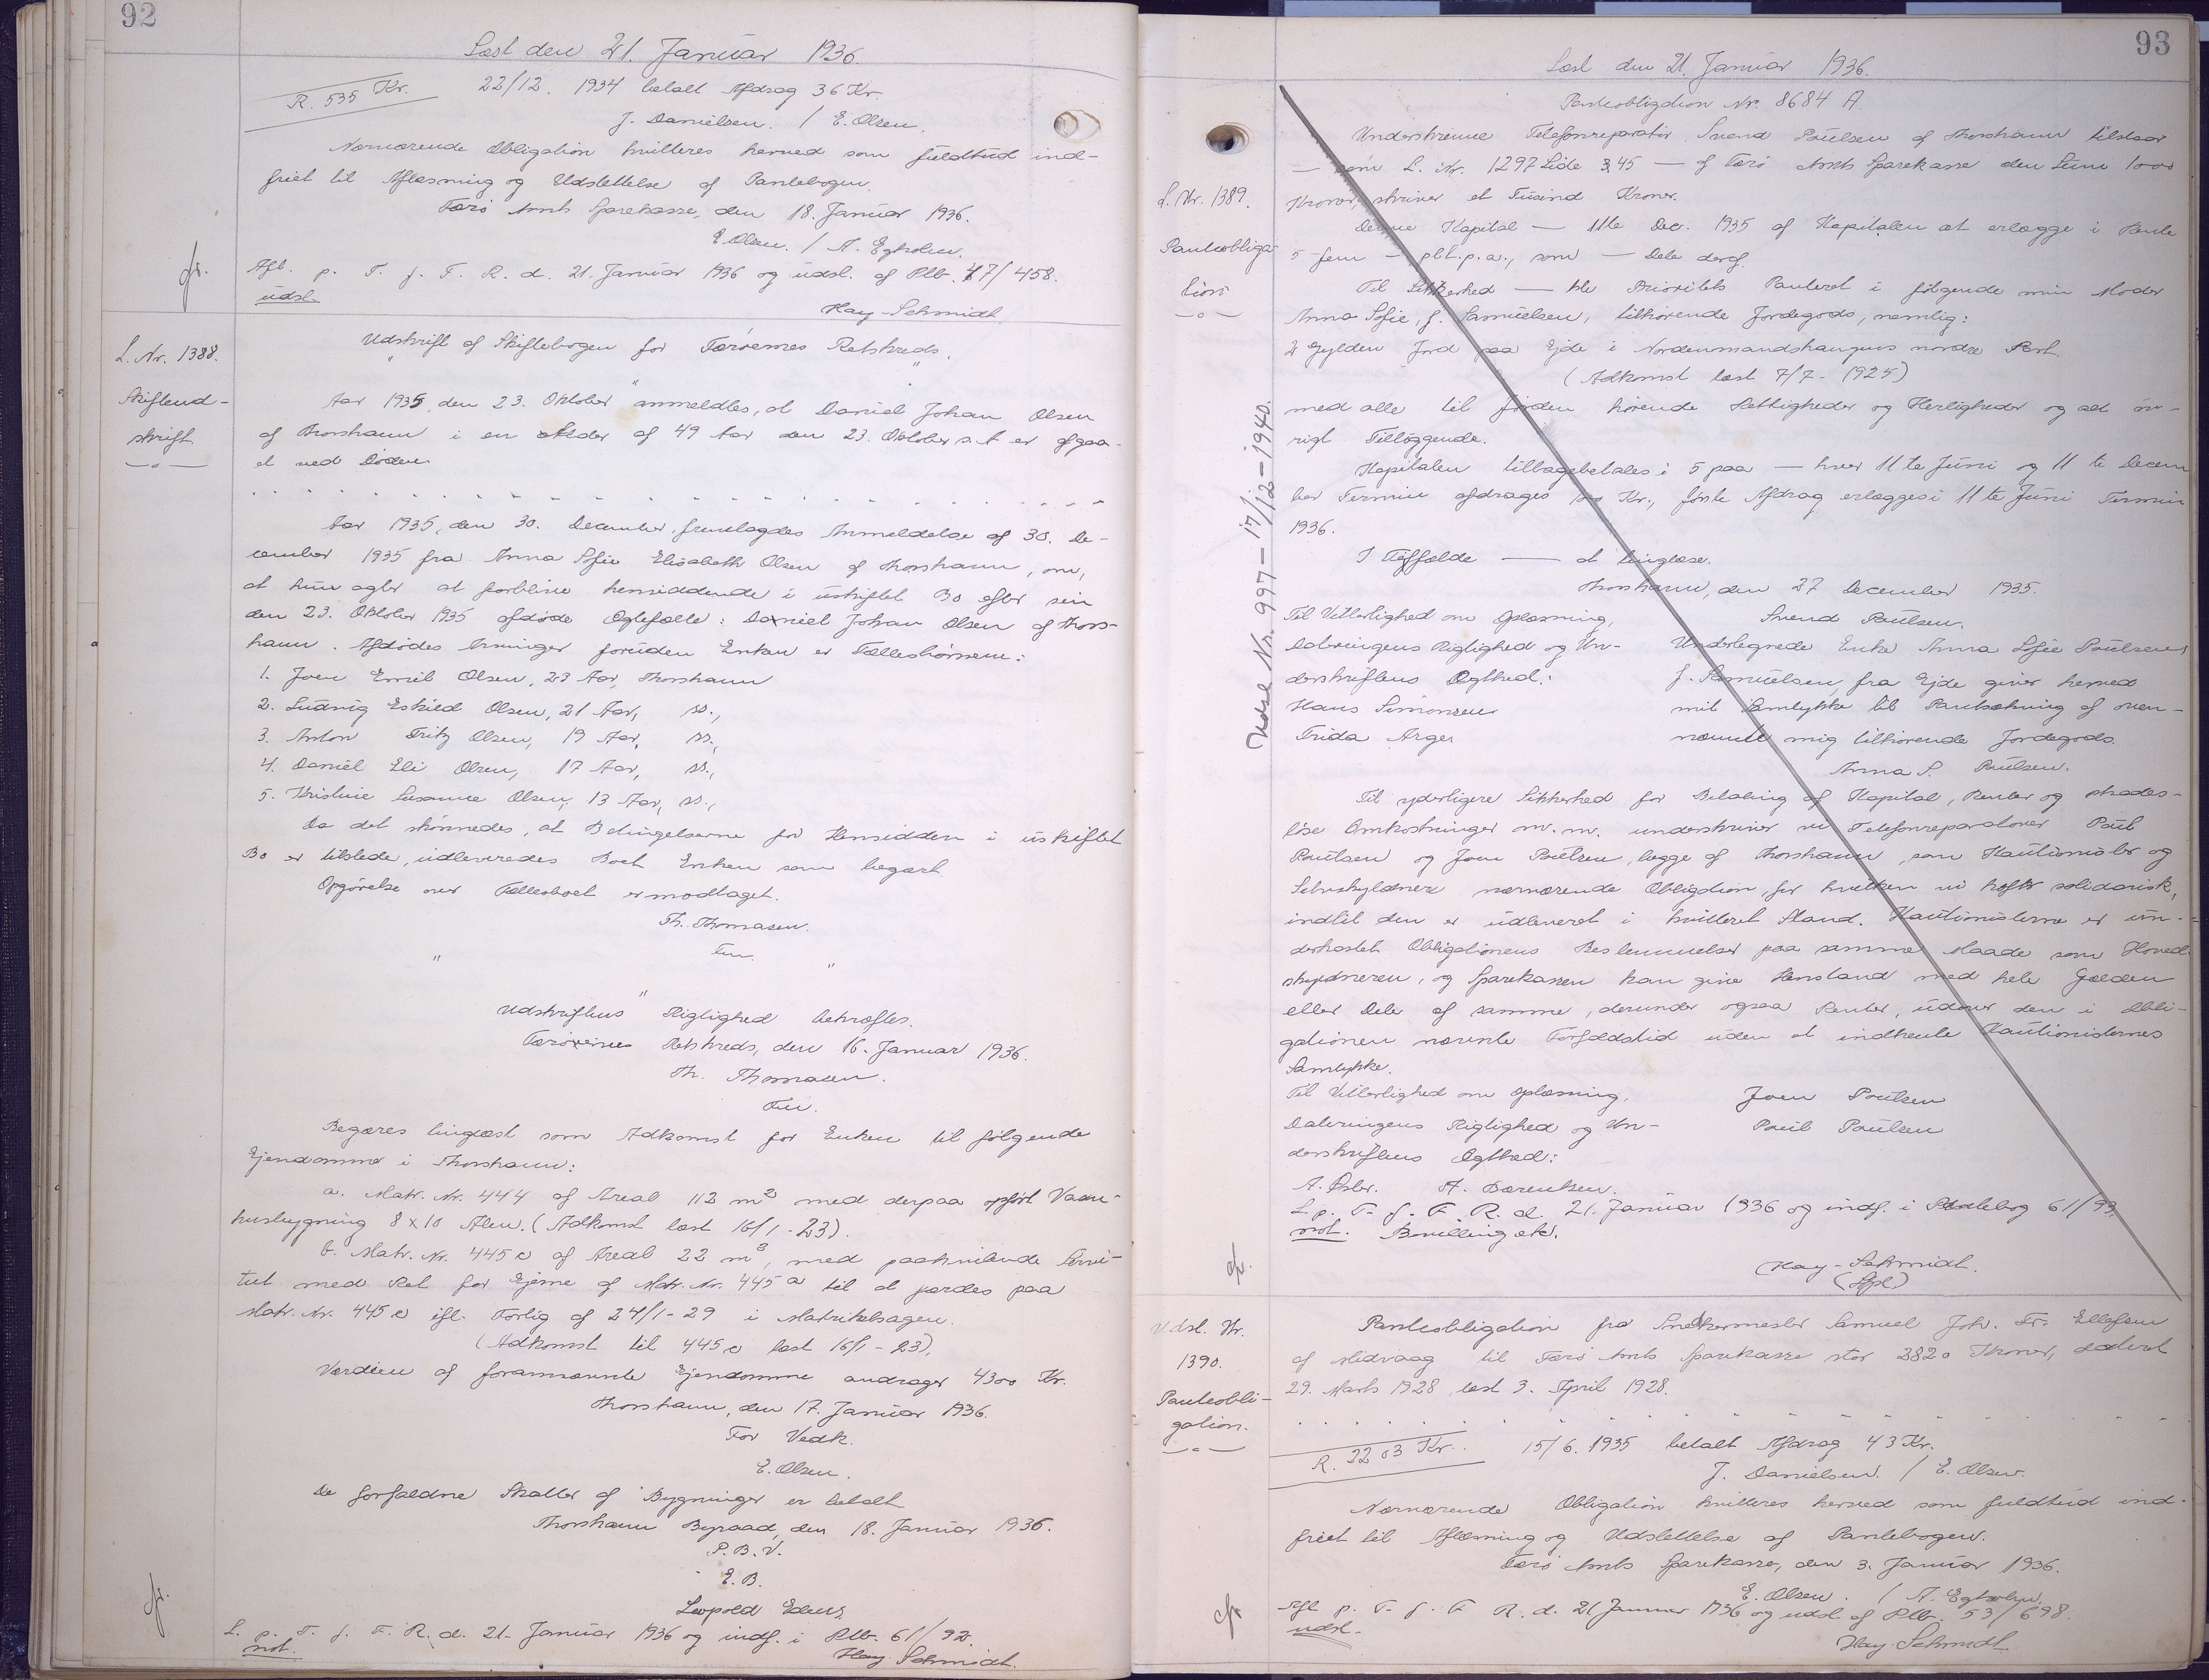 92
Læst den 21. Januar 1936.
R. 535 Kr. 22/12. 1934 betalt Afdrag 36 Kr.
J. Danielsen. / E. Olsen.
Nærværende Obligation kvitteres herved som fuldtud ind-
friet til Aflæsning og Udslettelse af Pantebogen.
Færø Amts Sparekasse, den 18. Januar 1936.
E Olsen. / A. Egholm.
Afl. p. T. f. F. R. d. 21. Januar 1936 og udsl. af Plb. 47/458.
udsl.
Hay-Schmidt.
L. Nr. 1388.
Skifteud-
skrift
Udskrift af Skiftebogen for Færøernes Retskreds.
Aar 1935, den 23. Oktober anmeldtes, at Daniel Johan Olsen
af Thorshavn i en Alder af 49 Aar den 23. Oktober s. A er afgaa-
et ved Døden.
Aar 1935, den 30. December, fremlagdes Anmeldelse af 30. De-
cember 1935 fra Anna Sofie Elisabeth Olsen af Thorshavn, om,
at hun agter at forblive hensiddende i uskiftet Bo efter sin
den 23. Oktober 1935 afdøde Ægtefælle: Daniel Johan Olsen af Thors-
havn. Afdødes Arvinger foruden Enken er Fællesbørnene:
1. Joen Emil Olsen, 23 Aar, Thorshavn
2. Ludvig Eskild Olsen, 21 Aar, ss.,
3. Anton Fritz Olsen, 19 Aar, ss.,
4. Daniel Eli Olsen, 17 Aar, ss.,
5. Kristine Susanne Olsen, 13 Aar, ss.,
Da det skønnedes, at Betingelserne for Hensidden i uskiftet
Bo er tilstede, udleveredes Boet Enken som begært
Opgørelse over Fællesboet er modtaget.
Th. Thomasen.
Fm.
Udskriftens Rigtighed bekræftes.
Færøernes Retskreds, den 16. Januar 1936.
Th. Thomasen.
Fm.
Begæres tinglæst som Adkomst for Enken til følgende
Ejendomme i Thorshavn:
a. Matr. Nr. 444 af Areal 112 m² med derpaa opført Vaan-
husbygning 8 x 10 Alen. (Adkomst læst 16/1-23).
b. Matr. Nr. 445 c af Areal 22 m², med paahvilende Servi-
tut med Ret for Ejerne af Matr. Nr. 445 a til at færdes paa
Matr. Nr. 445 c ifl. Forlig af 24/1-29 i Matrikelsagen.
(Adkomst til 445 c læst 16/1-23).
Værdien af forannævnte Ejendomme andrager 4300 Kr.
Thorshavn, den 17. Januar 1936.
For Vedk.
E. Olsen.
De forfaldne Skatter af Bygninger er betalt
Thorshavn Byraad, den 18. Januar 1936.
P. B. V.
E. B.
Leopold
L. p. T. f. F. R. d. 21. Januar 1936 og indf. i Plb. 61/92.
not.
Hay-Schmidt.
93
Læst den 21. Januar 1936.
Pantobligation Nr. 8684 A.
L. Nr. 1389.
Panteobliga
tion
Udsl. Nr. 997 - 17/12-1940.
Underskrevne Telefonreparatør Svend Poulsen af Thorshavn tilstaar
— som L. Nr. 1297 Side 345 — af Færø Amts Sparekasse den Sum 1000
Kroner, skriver et Tusind Kroner.
Denne Kapital — 11te Dec. 1935 af Kapitalen at erlægge i Rente
5 fem — pct. p. a., som — Dele deraf.
Til Sikkerhed — 1ste Prioritets Panteret i følgende min Moder
Anna Sofie, f. Samuelsen, tilhørende Jordegods, nemlig:
2 Gylden Jord paa Ejde i Nordenmandshaugens nordre Part
(Adkomst læst 7/7-1925)
med alle til Jorden hørende Rettigheder og Herligheder og alt øv-
rigt Tilliggende.
Kapitalen tilbagebetales i 5 paa — hver 11 te Juni og 11 te Decem
ber Termin afdrages 100 Kr., første Afdrag erlægges i 11 te Juni Termin
1936.
I Tilfælde — at tinglæse.
Thorshavn, den 27 December 1935.
Til Vitterlighed om Oplæsning, Svend Poulsen.
Dateringens Rigtighed og Un- Undertegnede Enke Anna Sofie Poulsen
derskriftens Ægthed: f. Samuelsen, fra Ejde giver herved
Hans Simonsen mit Samtykke til Pantsætning af oven-
Frida Arge. nævnte mig tilhørende Jordegods.
Anna S. Poulsen.
Til yderligere Sikkerhed for Betaling af Kapital, Renter og skades-
løse Omkostninger m. m. underskriver vi Telefonreparatører Poul
Poulsen og Joen Poulsen, begge af Thorshavn, som Kautionister og
Selvskyldnere nærværende Obligation, for hvilken vi hæfter solidarisk,
indtil den er udleveret i kvitteret Stand. Kautionisterne er un-
derkastet Obligationens Bestemmelser paa samme Maade som Hoved
skyldneren, og Sparekassen kan give Henstand med hele Gælden
eller Dele af samme, derunder ogsaa Renter, udover den i Obli-
gationen nævnte Forfaldstid uden at indhente Kautionisternes
Samtykke.
Til Vitterlighed om Oplæsning, Joen Poulsen
Dateringens Rigtighed og Un- Poul Poulsen
derskriftens Ægthed:
A. Ester. A. Bærentsen.
L. p. T. f. F. R. d. 21. Januar 1936 og indf. i Pantebog 61/93.
not. Bevilling etc.
Hay-Schmidt.
Udsl. Nr.
1390.
Panteobli-
gation.
Panteobligation fra Snedkermester Samuel Joh. Fr. Ellefsen
af Midvaag til Færø Amts Sparekasse stor 2820 Kroner, dateret
29. Marts 1928, læst 3. April 1928.
R. 2203 Kr. 15/6. 1935 betalt Afdrag 43 Kr.
J. Danielsen. / E. Olsen.
Nærværende Obligation kvitteres herved som fuldtud ind-
friet til Aflæsning og Udslettelse af Pantebogen.
Færø Amts Sparekasse, den 3. Januar 1936.
E. Olsen. / A. Egholm.
Afl. p. T. f. F. R. d. 21 Januar 1936 og udsl. af Plb. 53/698.
udsl.
Hay-Schmidt